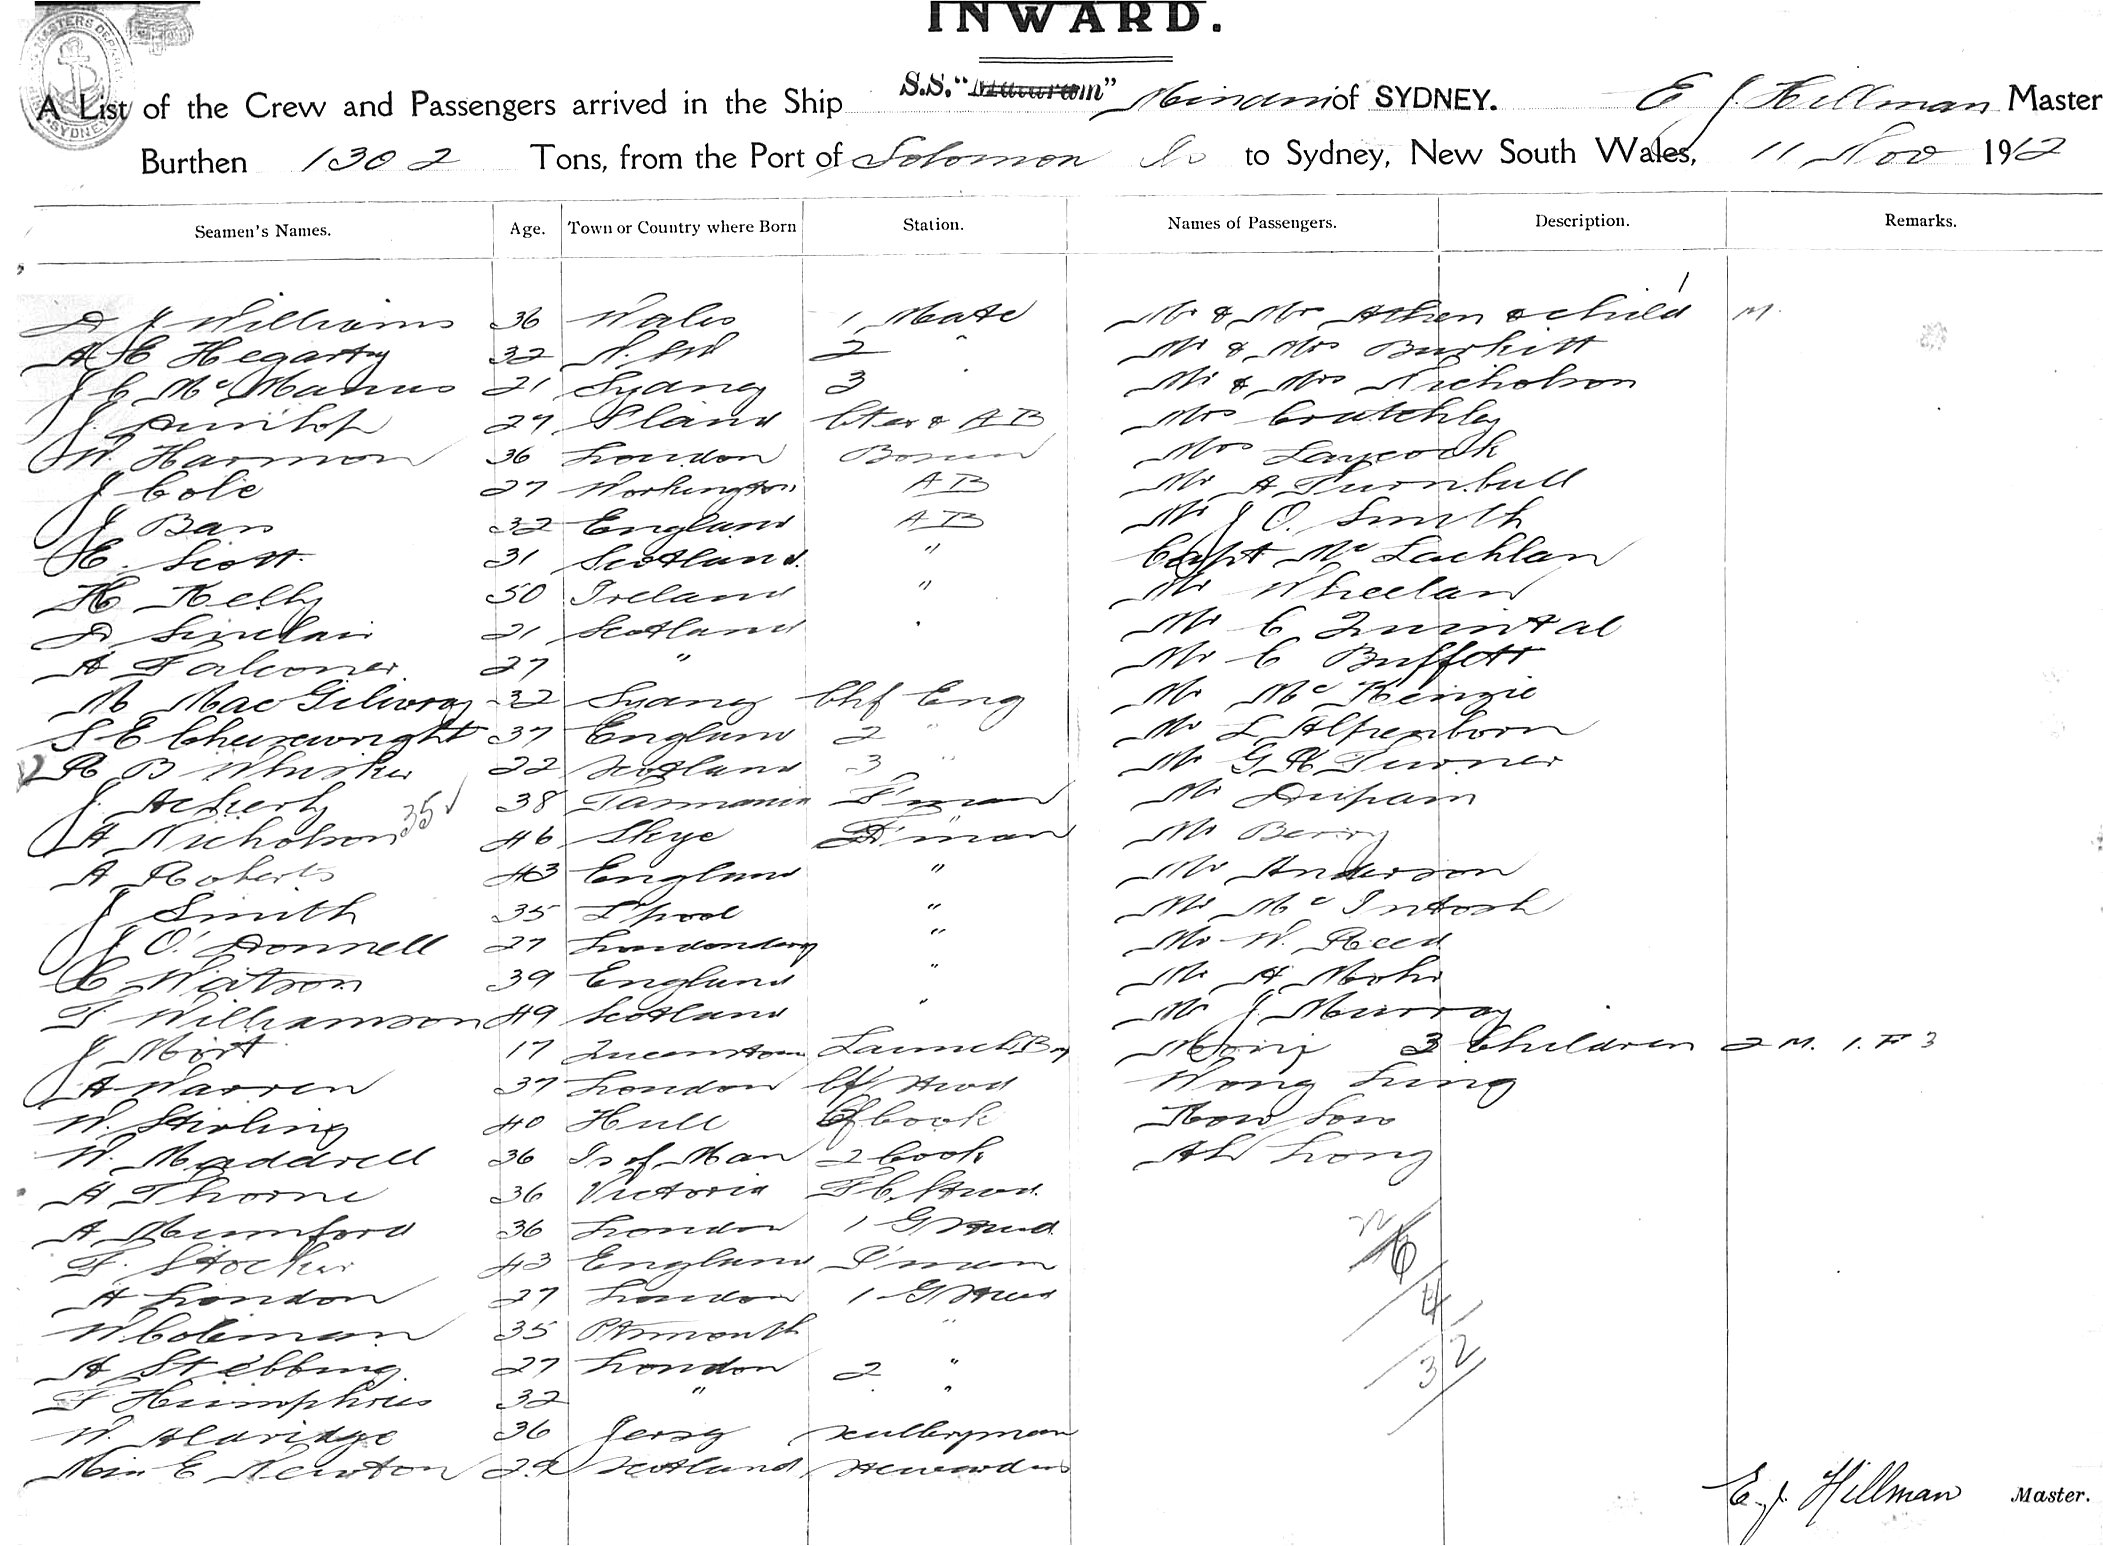 INWARD.
A List of the Crew and Passengers arrived in the Ship S.S. " " Mindini of SYDNEY. E J Hillman Master
Burthen 1302 Tons, from the Port of Solomon Is to Sydney, New South Wales, 11 Nov 1912
Seamen's Names. Age. Town or Country where Born Station. Names of Passengers. Description. Remarks.
D J Williams 36 Wales 1 Mate Mr & Mrs Athen & child 1 M.
A E Hegarty 32 N.SW 2 " Mr & Mrs Burkitt
J C McManus 21 Sydney 3 " Mr & Mrs Nicholson
J Dunlop 27 Mrs Crutchley
W. Harmon 36 London Bosun Mrs Laycock
J Cole 27 Workington AB Mr A Turnbull
J Ban 32 England AB Mr J O. Smith
E. Scott 31 Scotland " Capt McLachlan
H Kelly 50 Ireland " Mr Wheelan
D Sinclair 21 Scotland " Mr C Quintal
A Falconer 27 " Mr C Buffett
M MacGilivray 32 Sydney Chf Eng Mr McKenzie
S E 37 England 2 " Mr L Alpenborn
R B Whisker 22 Scotland 3 " Mr G H Turner
J. Ackerly 38 Tasmania F'man Mr
A Nicholson 35 46 Skye F'man Mr Berry
A Roberts 43 England " Mr Anderson
J Smith 35 L'pool " Mr McIntosh
J O'Donnell 27 Londonderry " Mr W. Reed
C Watson 39 England " Mr A Mohr
T Williamson 49 Scotland " Mr J Murray
J Mort 17 Queenstown Launch Boy 3 Children 2 M. 1. F 3
A Warren 37 London Cf Stwd Wong Ling
W. Stirling 40 Hull Cf Cook How Sow
W. Maddrell 36 Is of Man 2 Cook Ah Long
A Thorne 36 Victoria F C. Stwd.
A Mumford 36 London 1 G Stwd
F. Stocker 43 England P'man
A London 27 London 1 G Stwd
W Coleman 35 Ptsmouth "
A Stebbing 27 London 2 "
F Humphries 32 " "
W. Aldridge 36 Jersey Sculleryman
Miss E Newton 29 Scotland Stewardess
E. J. Hillman Master.